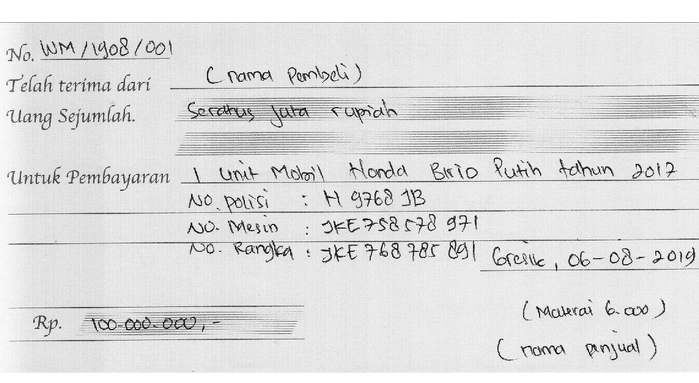 No. WM/1908/001
Telah terima dari (nama Pembeli)
Uang Sejumlah. Seratus juta rupiah
Untuk Pembayaran 1 Unit Mobil Honda Brio Putih tahun 2017
NO. polisi : H 9768 JB
NO. Mesin : JKE 758 578 971
NO. Rangka : JKE 768 785 891
Gresik, 06-08-2019
(Materai 6.000)
Rp. 100.000.000,-
(nama penjual)